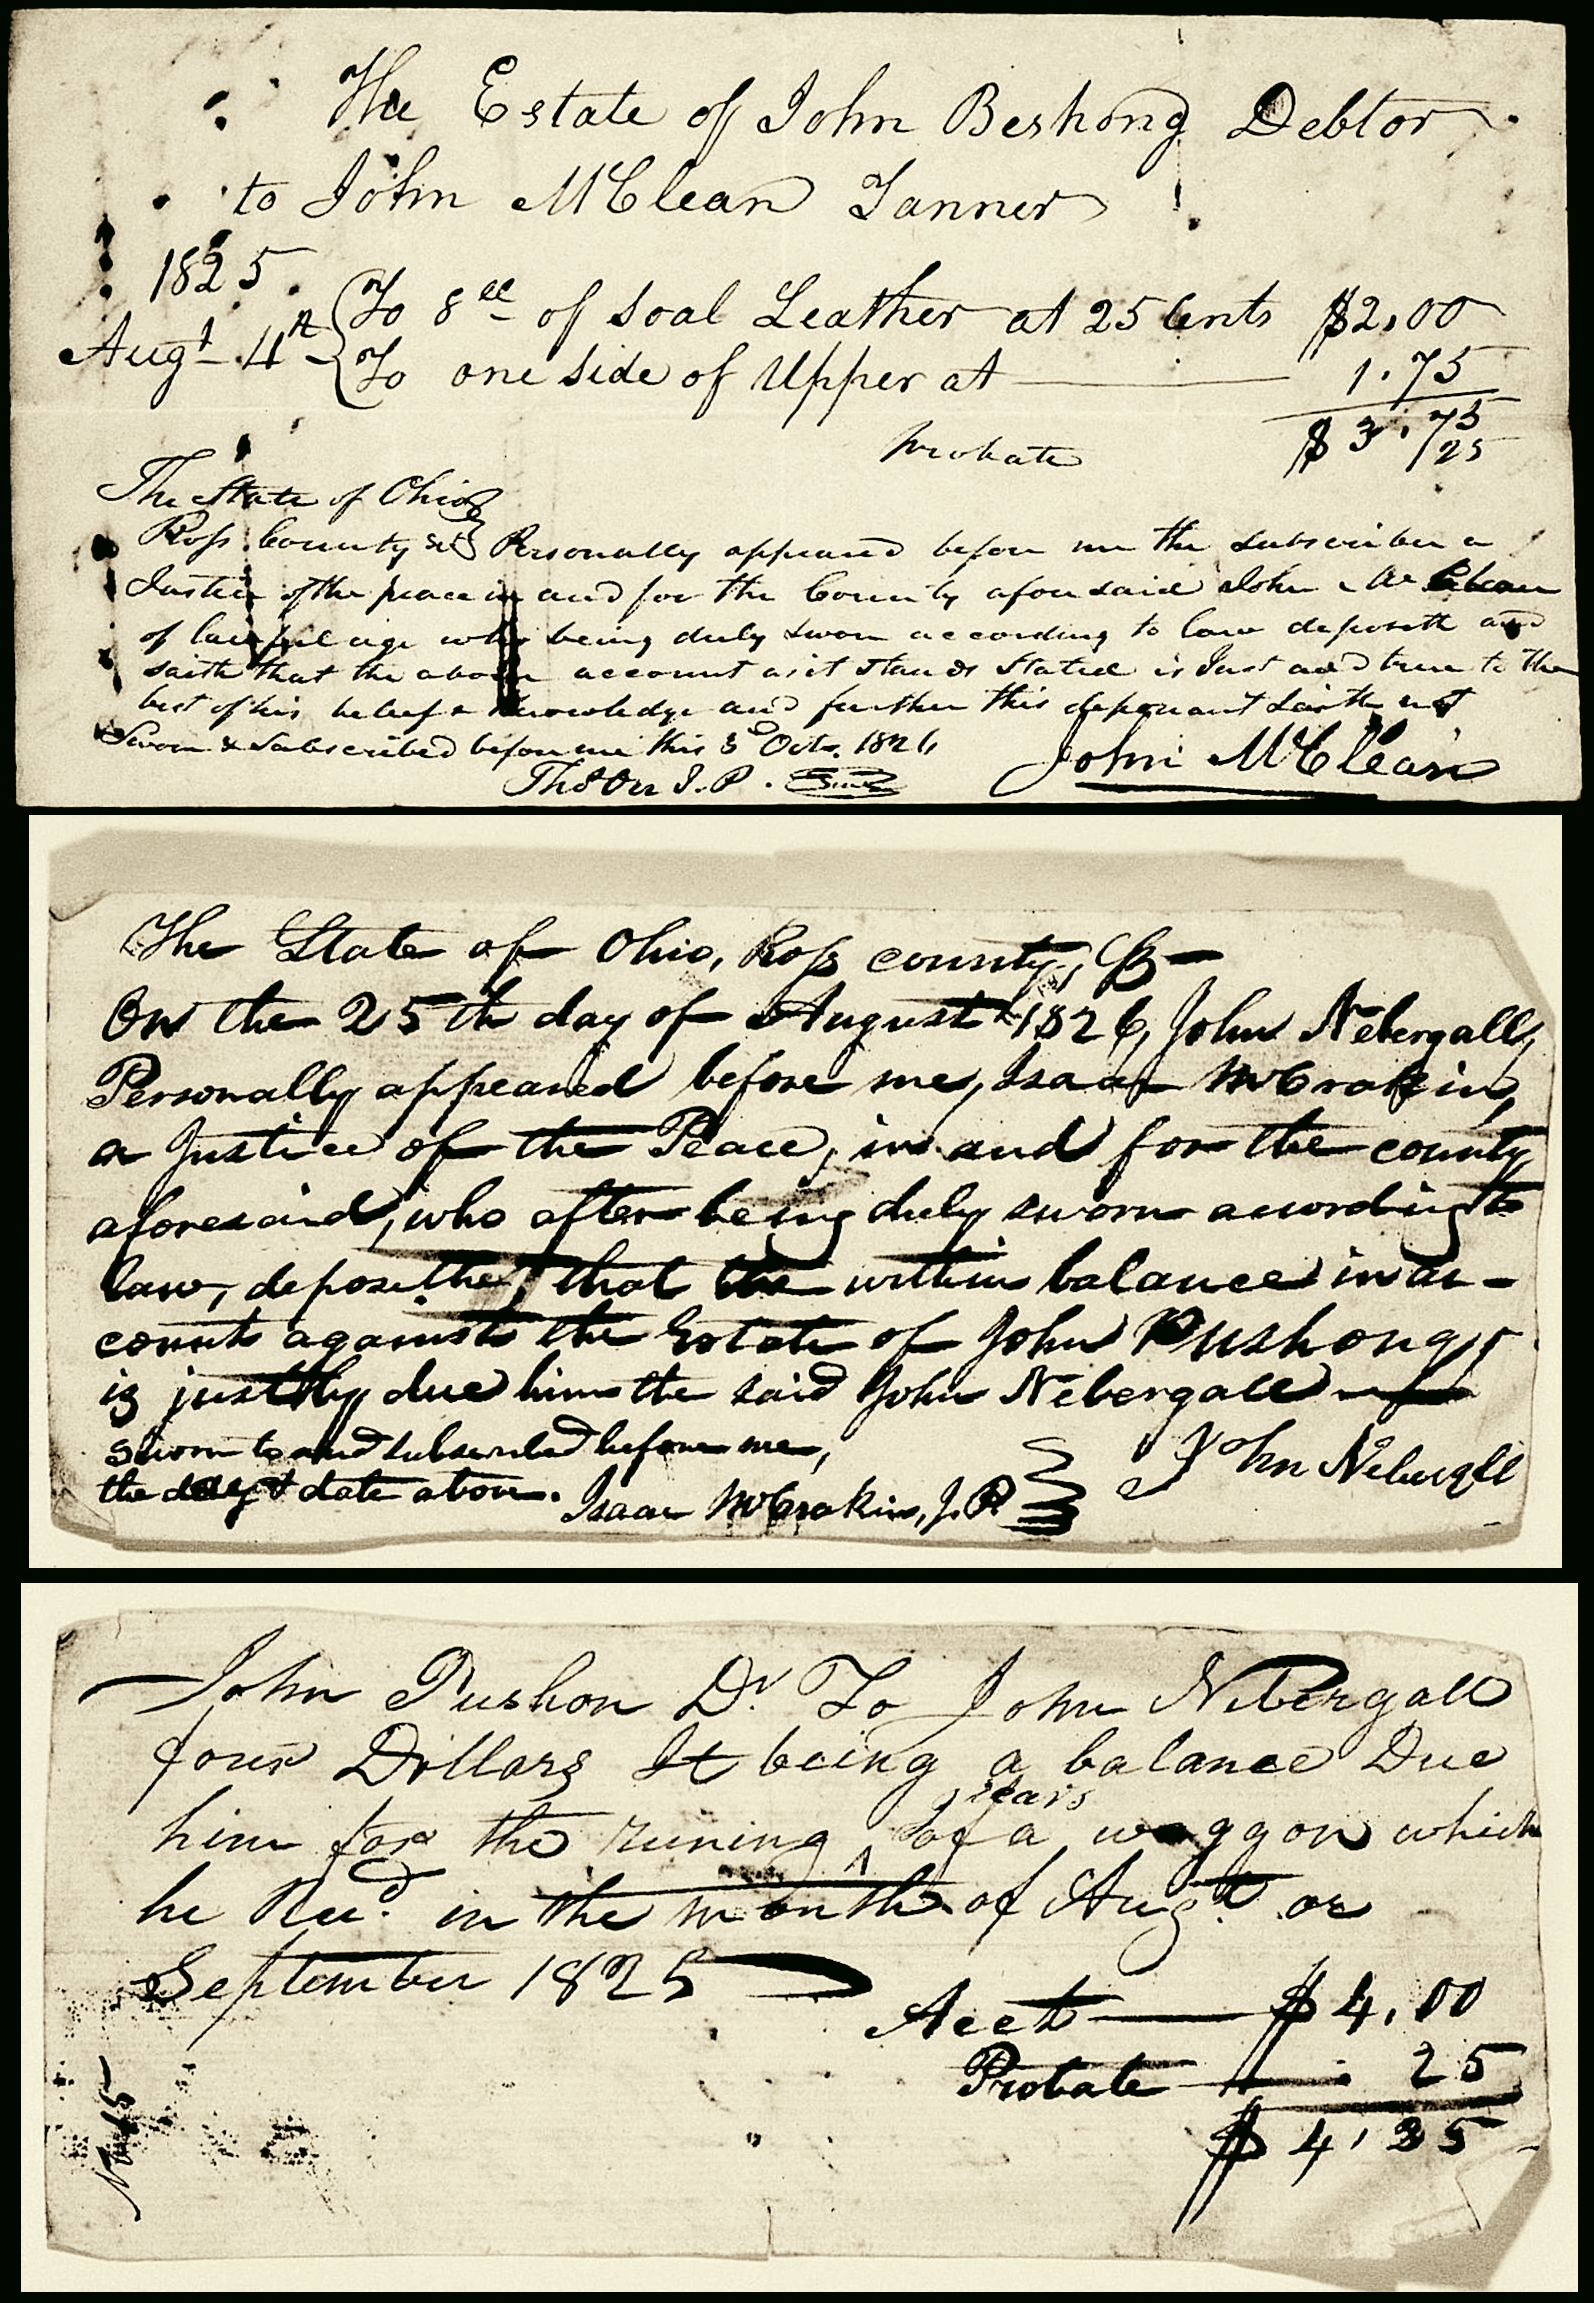 The Estate of John Beshong Debtor
to John McClean Tanner
1825
Augt 4th To 8 ll of Soal Leather at 25 Cents $2,00
To one side of Upper at 1.75
$3.75
probate 25
The State of Ohio
Ross County sct Personally appeared before me the subscriber a
Justice of the peace in and for the County aforesaid John Mc Clean
of lawful age who being duly sworn according to law deposeth and
saith that the above account as it stands Stated is Just and true to the
best of his belief & knowledge and further this deponant Saith not
Sworn & Subscribed before me this 3d Octr. 1826
John McClean
Thos Orr J.P.
The State of Ohio, Ross county, SS
On the 25th day of August 1826, John Nebergall,
Personally appeared before me, Isaac McCrakin,
a Justice of the Peace, in and for the county
aforesaid, who after being duly sworn acording to
law, deposethe, that the within balance in ac-
count against the Estate of John Pushong,
is justly due him the said John Nebergall
sworn to and subscribed before me,
the day & date above.
John Nebergall
Isaac McCrakin, J.P.
John Pushon Dr. To John Nebergall
four Dollars It being a balance Due
him for the runing gears of a waggon which
he Recd. in the month of Augt. or
September 1825
Acct $4,00
Probate 25
$4,25
No 45